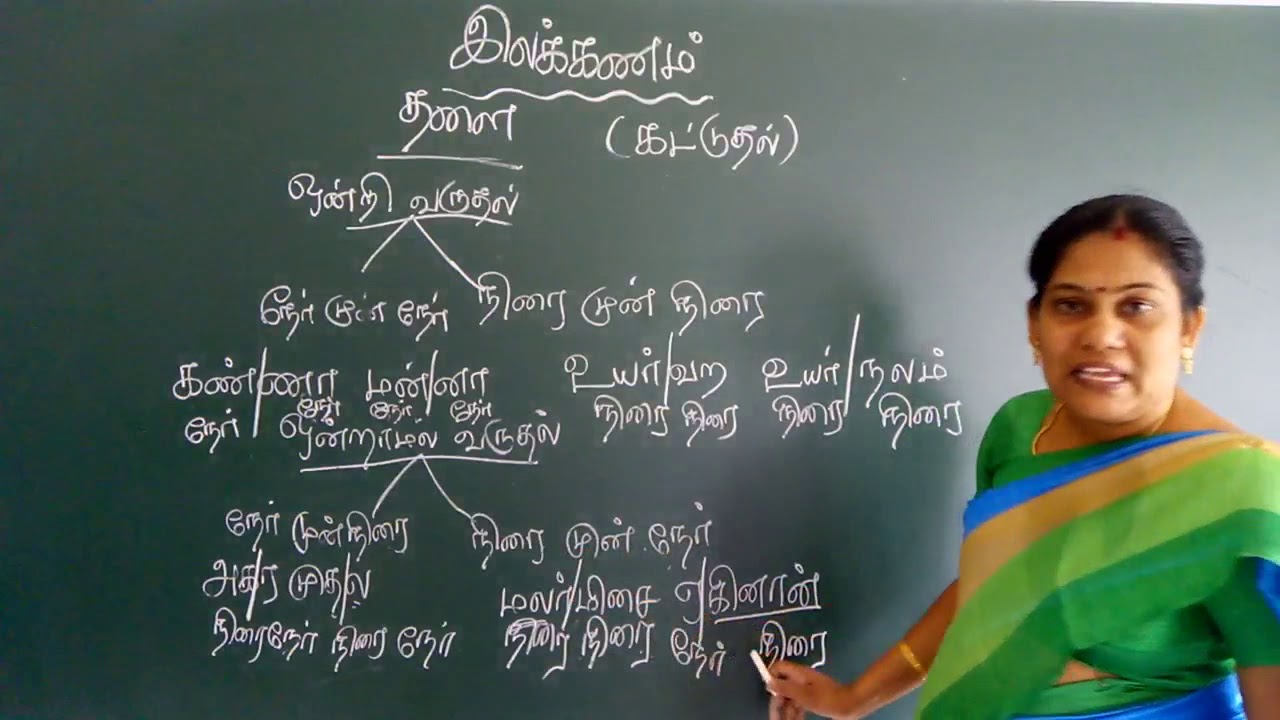 இலக்கணம்
தளை (கட்டுதல்)
ஒன்றி வருதல்
நேர் முன் நேர் நிரை முன் நிரை
கண்/ணா மன்/னா உயர்/வற உயர்/நலம்
நேர் நேர் நேர் நேர் நிரை நிரை நிரை நிரை
ஒன்றாமல் வருதல்
நேர் முன் நிரை நிரை முன் நேர்
அக/ர முத/ல மலர்/மிசை ஏ/கினான்
நிரைநேர் நிரை நேர் நிரை நிரை நேர் நிரை